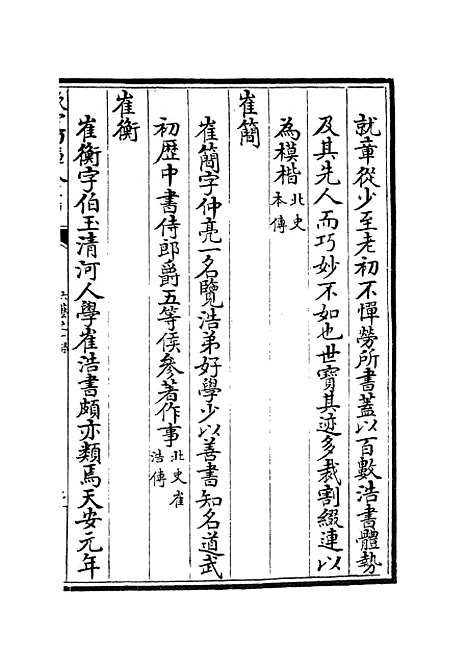 就章從少至老初不憚勞所書蓋以百數浩書體勢
及其先人而巧妙不如也世寶其迹多裁割綴連以
為模楷北史本傳
崔簡
崔簡字仲亮一名覽浩弟好學少以善書知名道武
初歷中書侍郎爵五等侯參著作事北史崔浩傳
崔衡
崔衡字伯玉清河人學崔浩書頗亦類焉天安元年